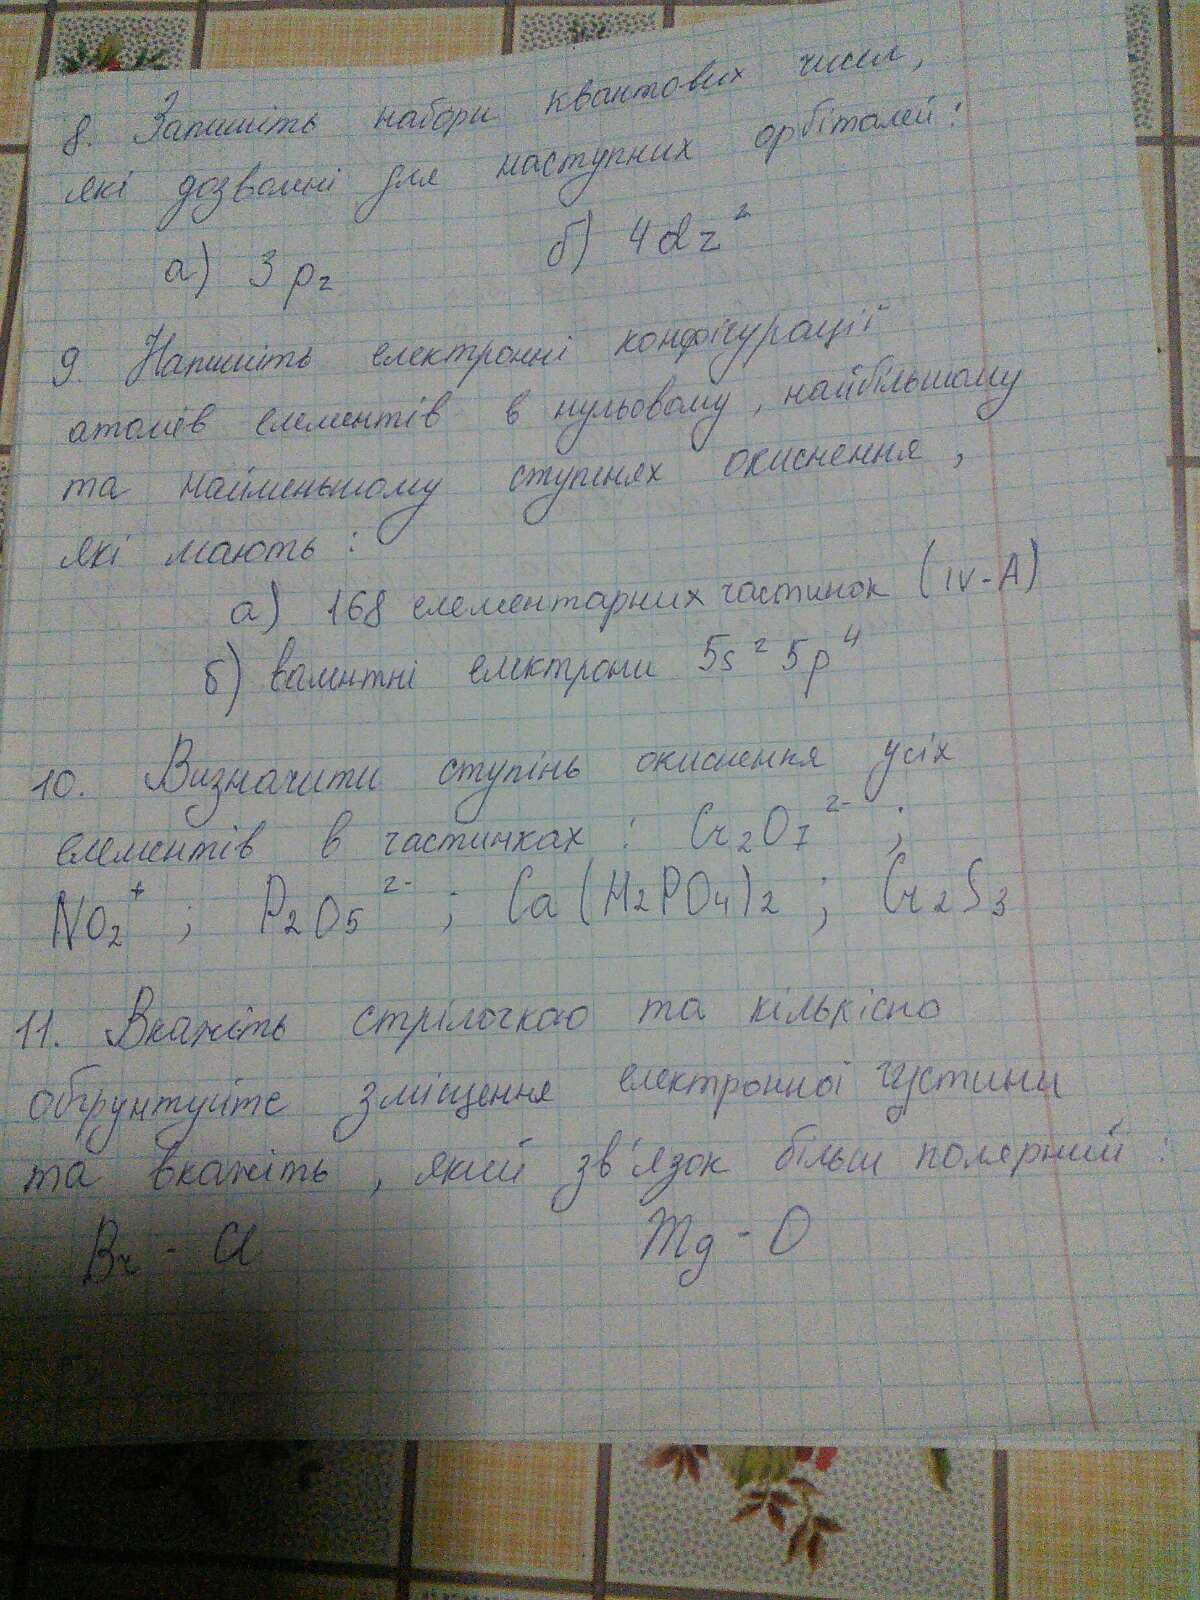 8. Запишіть набори квантових чисел,
які дозволені для наступних орбіталей:
а) 3pz б) 4dz²
9. Напишіть електронні конфігурації
атомів елементів в нульовому, найбільшому
та найменьшому ступенях окиснення,
які мають:
а) 168 елементарних частинок (IV-A)
б) валентні електрони 5s² 5p⁴
10. Визначити ступінь окиснення усіх
елементів в частинках: Cr₂O₇²⁻;
NO₂⁺; P₂O₅²⁻; Ca(H₂PO₄)₂; Cr₂S₃
11. Вкажіть стрілочкою та кількісно
обґрунтуйте зміщення електронної густини
та вкажіть, який зв'язок більш полярний:
Br - Cl Mg - O